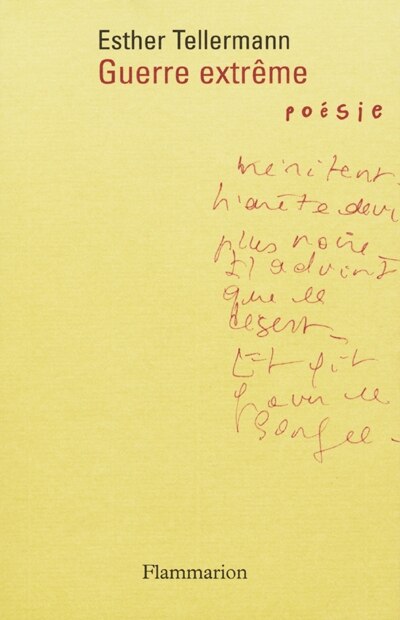 Esther Tellermann
Guerre extrême
poésie
méritent
plus noire
Il advint
que le
désert
Et
pour le
Flammarion